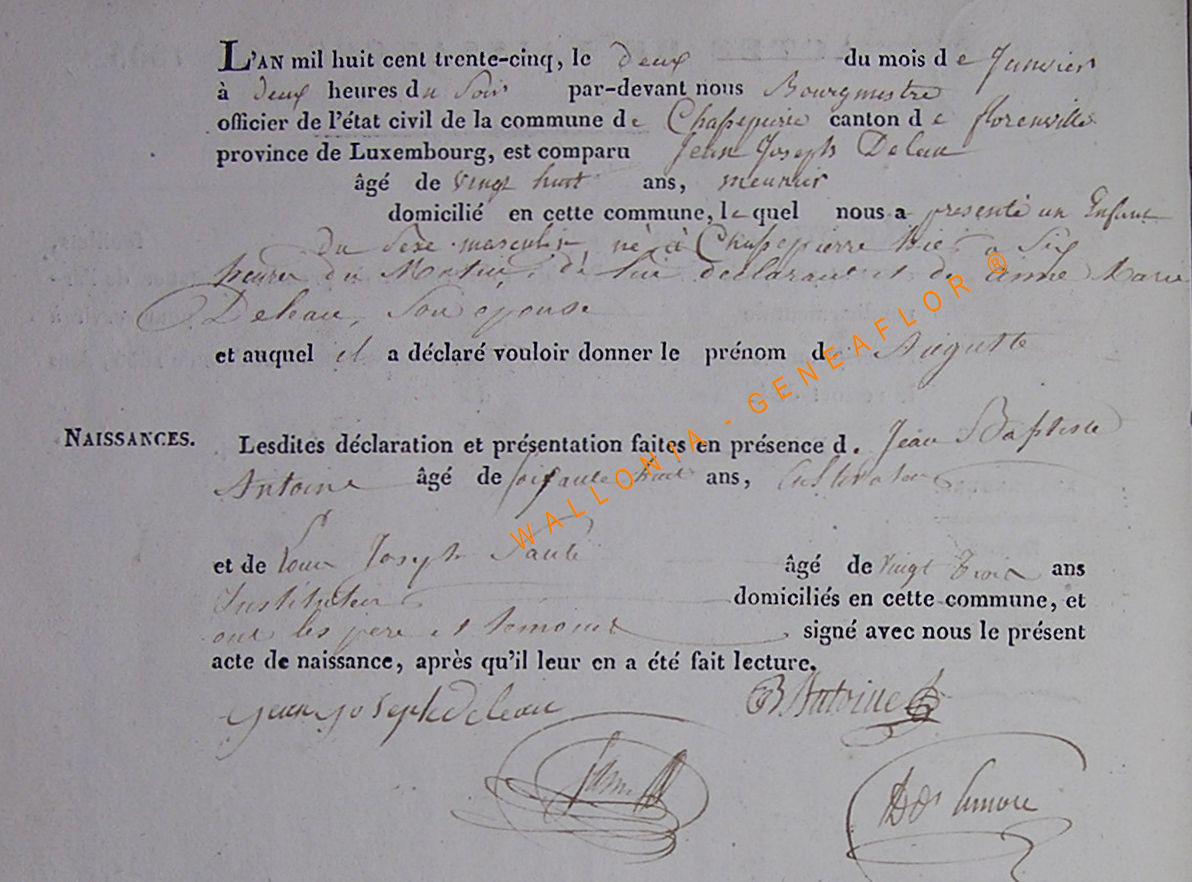 L'AN mil huit cent trente-cinq, le deux du mois de Janvier
à deux heures du Soir par-devant nous Bourgmestre
officier de l'état civil de la commune de Chassepierre canton de florenville
province de Luxembourg, est comparu Jean Joseph Deleau
âgé de vingt huit ans, meunier
domicilié en cette commune, le quel nous a presenté un Enfant
du Sexe masculin né à Chassepierre hier a Six
heures du Matin, de lui declarant et de anne Marie
Deleau, Son épouse
et auquel il a déclaré vouloir donner le prénom de Auguste
NAISSANCES.
Lesdites déclaration et présentation faites en présence d. Jean Baptiste
Antoine âgé de soixante huit ans, Cultivateur
et de Louis Joseph âgé de vingt trois ans
Instituteur domiciliés en cette commune, et
ont les pere et temoins signé avec nous le présent
acte de naissance, après qu'il leur en a été fait lecture.
jean joseph deleau B Antoine
WALLONIA - GENEAFLOR ®